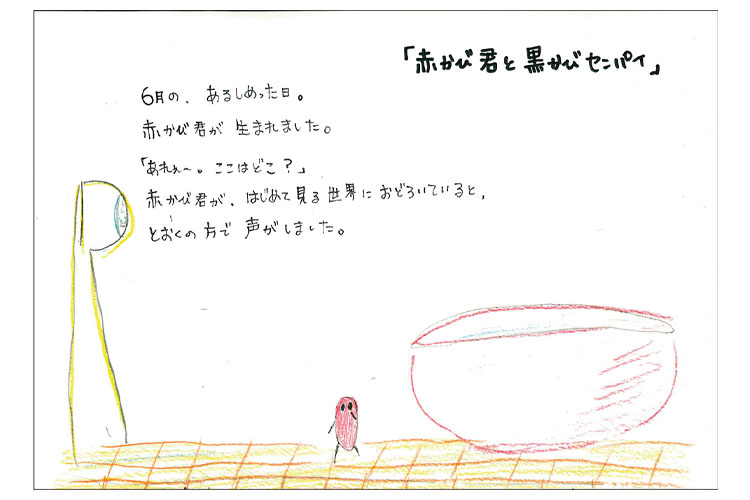 「赤かび君と黒かびセンパイ」
6月の、あるしめった日。
赤かび君が生まれました。
「あれぇ〜。ここはどこ？」
赤かび君が、はじめて見る世界におどろいていると、
とおくの方で声がしました。